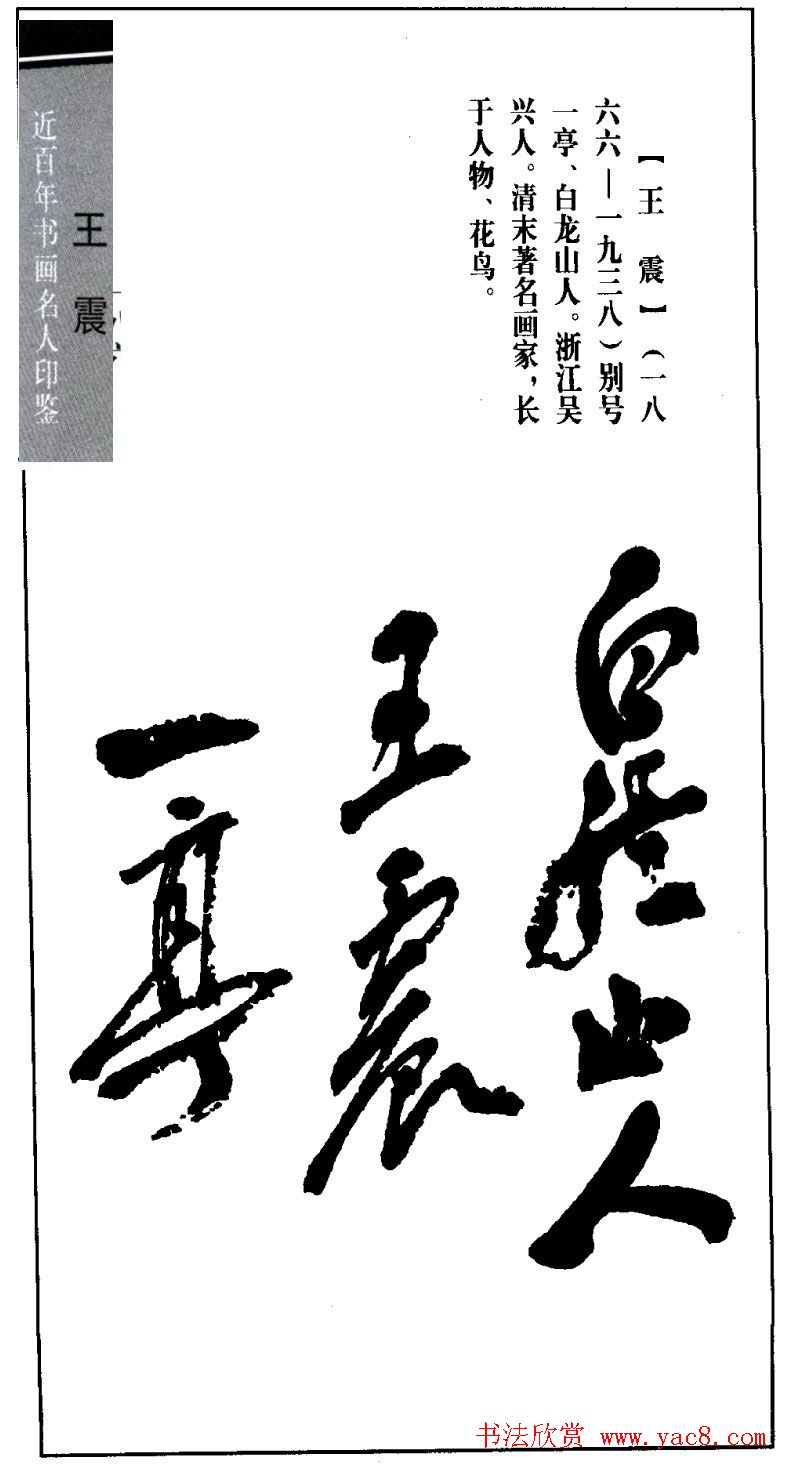 【王　震】（一八
六六—一九三八）别号
一亭、白龙山人。浙江吴
兴人。清末著名画家，长
于人物、花鸟。
王震
近百年书画名人印鉴
白龙山人
王震
一亭
书法欣赏 www.yac8.com